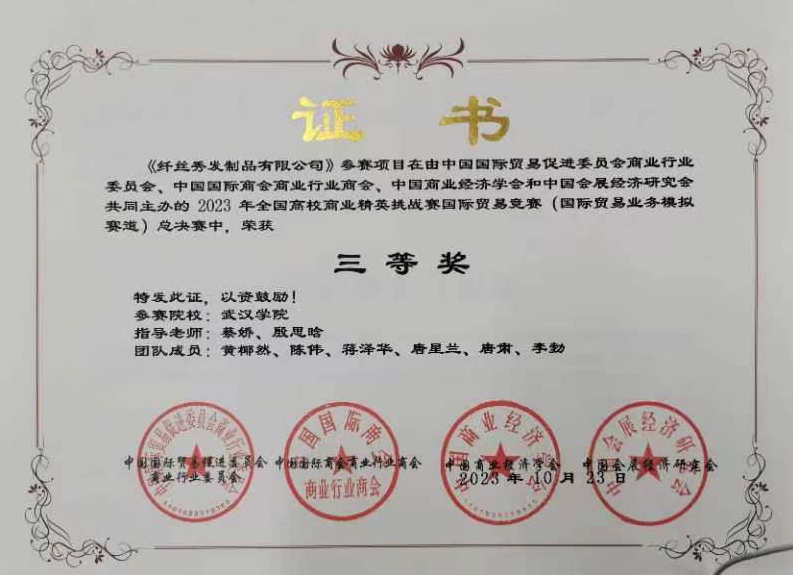 证 书
《纤丝秀发制品有限公司》参赛项目在由中国国际贸易促进委员会商业行业
委员会、中国国际商会商业行业商会、中国商业经济学会和中国会展经济研究会
共同主办的 2023 年全国高校商业精英挑战赛国际贸易竞赛（国际贸易业务模拟
赛道）总决赛中，荣获
三 等 奖
特发此证，以资鼓励！
参赛院校：武汉学院
指导老师：蔡娇、殷思晗
团队成员：黄椰然、陈伟、蒋泽华、唐星兰、唐肃、李勤
中国国际贸易促进委员会 中国国际商会商业行业商会 中国商业经济学会 中国会展经济研究会
商业行业委员会
2023 年 10 月 23 日
商业行业商会